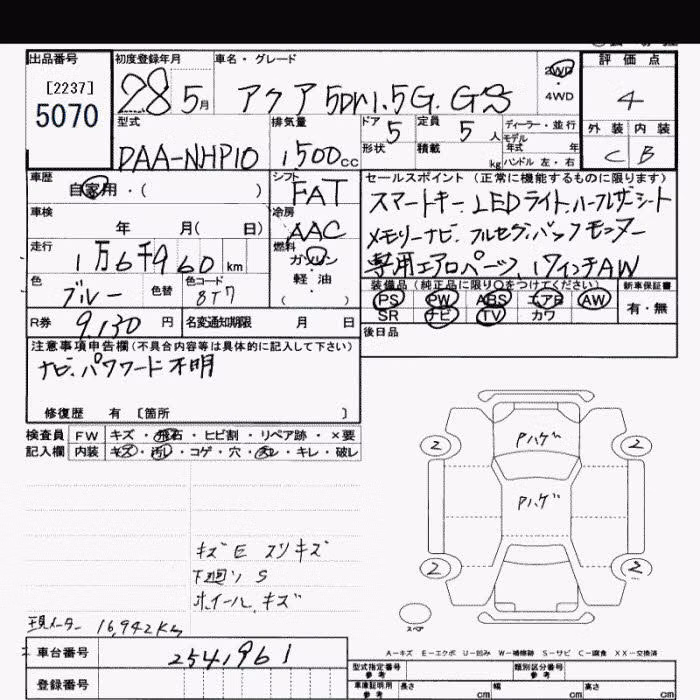 出品番号
[2237]
5070
初度登録年月
28 5月
車名・グレード
アクア 5Dr1.5G. GS
2WD
4WD
評価点
4
外装 内装
C B
型式
DAA-NHP10
排気量
1500cc
ドア 5
形状
定員 5人
積載 kg
ディーラー・並行
モデル年式 年
ハンドル 左・右
車歴
自家用・( )
シフト
FAT
車検
年 月( 日)
冷房
AAC
走行
1万6千960km
燃料
ガソリン
軽油
( )
色
ブルー
色替
色コード
8T7
R券
9,130円
名変通知期限 月 日
セールスポイント(正常に機能するものに限ります)
スマートキー.LEDライト.ハーフレザーシート
メモリーナビ.フルセグ.バックモニター
専用エアロパーツ.17インチAW
装備品(純正品に限り○をつけてください)
PS PW ABS エアB AW
SR ナビ TV カワ
新車保証書
有・無
後日品
注意事項申告欄(不具合内容等は具体的に記入して下さい)
ナビ.パスワード不明
修復歴 有 [箇所 ]
検査員
記入欄
FW キズ・飛石・ヒビ割・リペア跡・×要
内装 キズ・汚レ・コゲ・穴・・キレ・破レ
Pハゲ
2 2
Pハゲ
2 2
キズE スリキズ
下廻リ S
ホイール.キズ
スペア
現メーター 16,942Km
A−キズ E−エクボ U−凹み W−補修跡 S−サビ C−腐食 XX−交換済
車台番号
2541961
登録番号
型式指定番号
参考
類別区分番号
参考
車庫証明用
参考
長さ cm 幅 cm 高さ cm